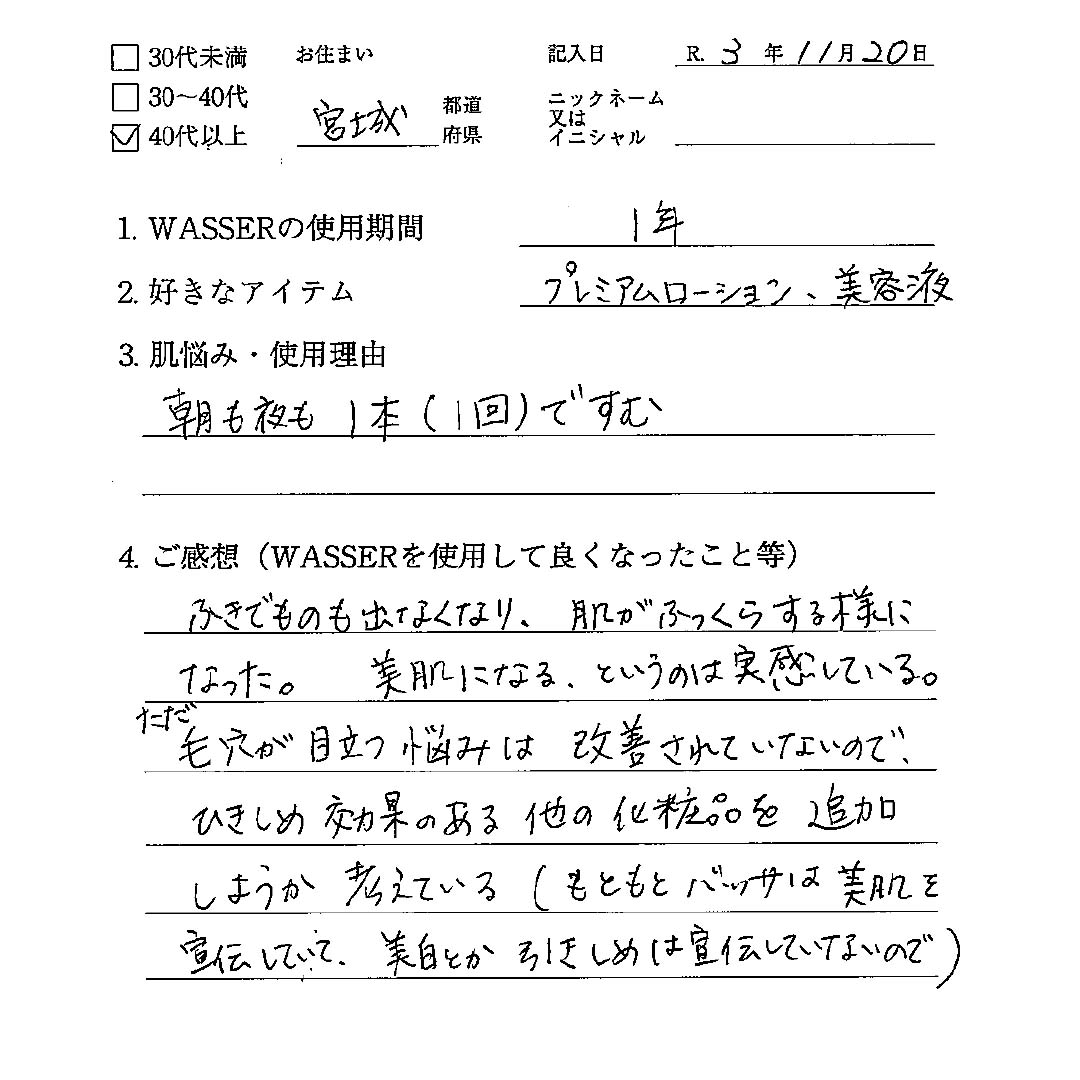 30代未満 お住まい 記入日 R. 3 年 11月20日
30〜40代 宮城 都道府県 ニックネーム又はイニシャル
40代以上
1. WASSERの使用期間 1年
2. 好きなアイテム プレミアムローション、美容液
3. 肌悩み・使用理由
朝も夜も 1本(1回)ですむ
4. ご感想(WASSERを使用して良くなったこと等)
ふきでものも出なくなり、肌がふっくらする様に
なった。 美肌になる、というのは実感している。
ただ
毛穴が目立つ悩みは 改善されていないので、
ひきしめ効果のある他の化粧品を追加
しようか 考えている(もともとバッサは美肌を
宣伝していて、美白とか引きしめは宣伝していないので)